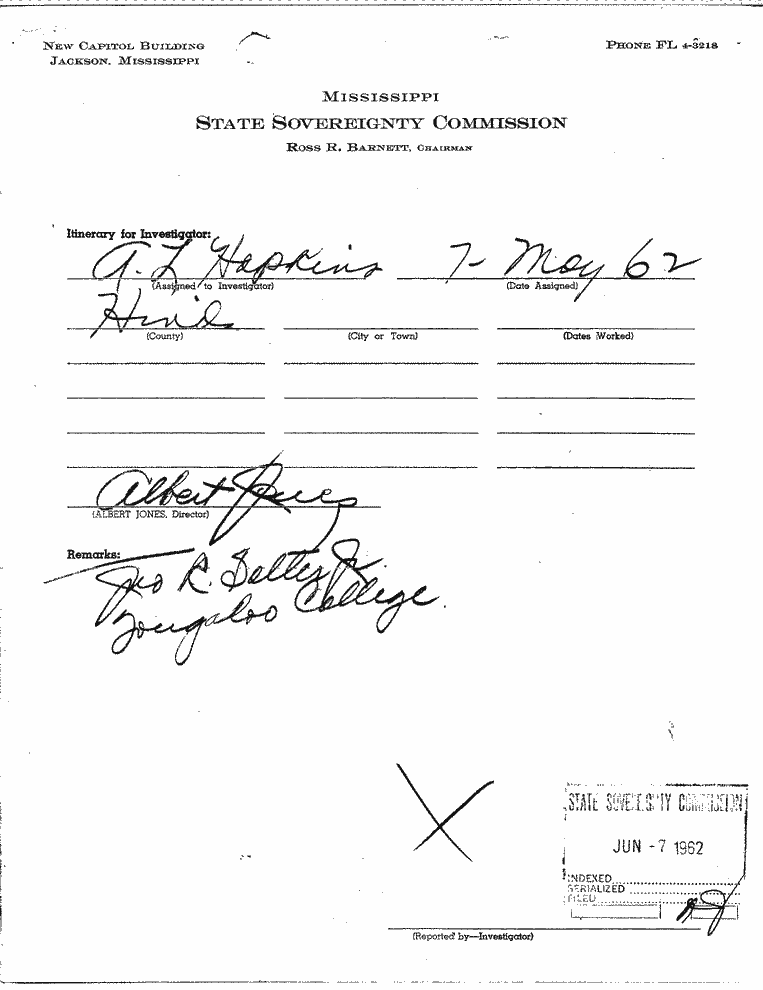 NEW CAPITOL BUILDING
JACKSON, MISSISSIPPI
PHONE FL 4-3218
MISSISSIPPI
STATE SOVEREIGNTY COMMISSION
ROSS R. BARNETT, CHAIRMAN
Itinerary for Investigator:
A. L. Hopkins 7- May 62
(Assigned to Investigator) (Date Assigned)
Hinds
(County) (City or Town) (Dates Worked)
Albert Jones
(ALBERT JONES, Director)
Remarks:
R. Jr.
Tougaloo College.
STATE SOVEREIGNTY COMMISSION
JUN -7 1962
INDEXED
SERIALIZED
FILED
(Reported by—Investigator)